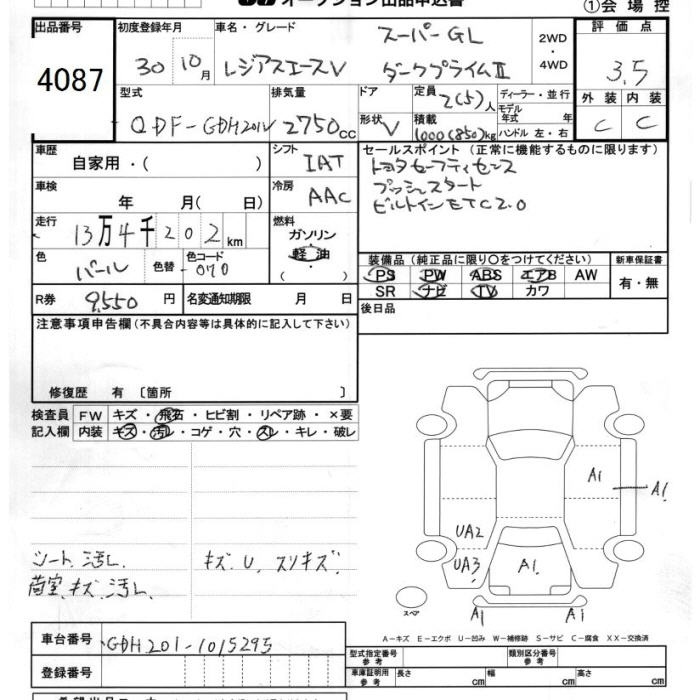 オークション出品申込書
①会場控
出品番号 4087
初度登録年月 30 10月
車名・グレード レジアスエースV スーパーGL ダークプライムⅡ
2WD・4WD
評価点 3.5
外装 C 内装 C
型式 QDF-GDH201V
排気量 2750cc
ドア
形状 V
定員 2(5)人
積載 1000(850)kg
ディーラー・並行
モデル年式 年
ハンドル 左・右
車歴 自家用・( )
シフト IAT
冷房 AAC
車検 年 月( 日)
走行 13万4千202km
燃料 ガソリン・軽油・( )
色 パール 色替 色コード 070
R券 9,550円
名変通知期限 月 日
セールスポイント(正常に機能するものに限ります)
トヨタセーフティセンス
プッシュスタート
ビルトインETC2.0
装備品(純正品に限り○をつけてください)
PS PW ABS エアB AW
SR ナビ TV カワ
新車保証書 有・無
後日品
注意事項申告欄(不具合内容等は具体的に記入して下さい)
修復歴 有 〔箇所 〕
検査員記入欄
FW キズ・飛石・ヒビ割・リペア跡・×要
内装 キズ・汚レ・コゲ・穴・スレ・キレ・破レ
シート汚レ
荷室キズ汚レ
キズ、U、スリキズ
A1
A1
UA2
UA3
A1
A1
A1
スペア
A−キズ E−エクボ U−凹み W−補修跡 S−サビ C−腐食 XX−交換済
車台番号 GDH201-1015295
登録番号
型式指定番号 参考
類別区分番号 参考
車庫証明用 参考 長さ cm 幅 cm 高さ cm